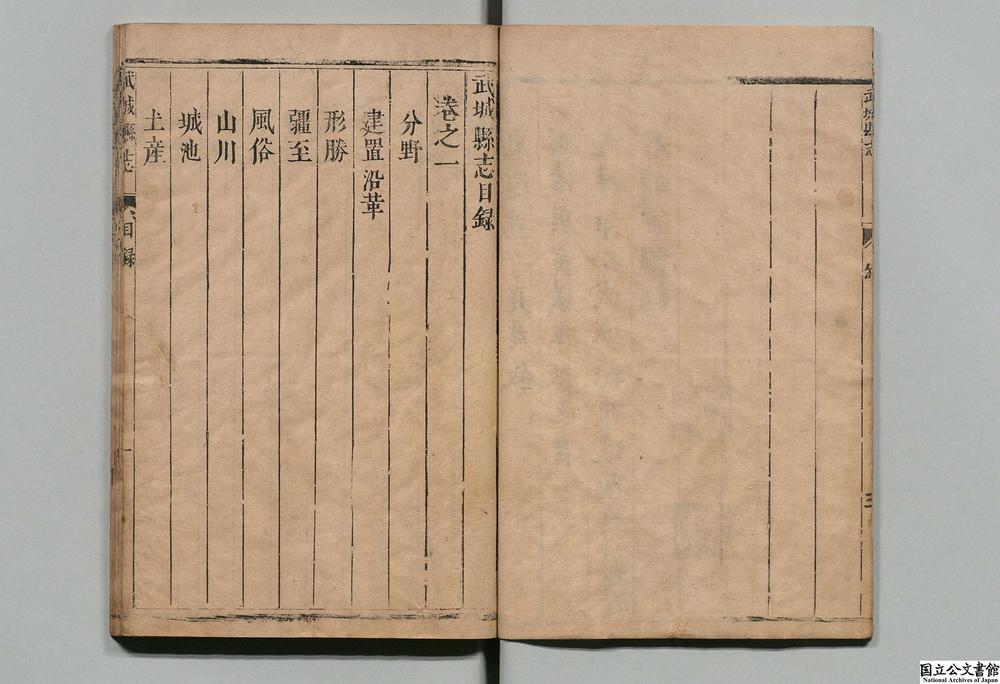 武城縣志
三
武城縣志目録
卷之一
分野
建置沿革
形勝
疆至
風俗
山川
城池
土産
武城縣志
目録
一
国立公文書館
National Archives of Japan